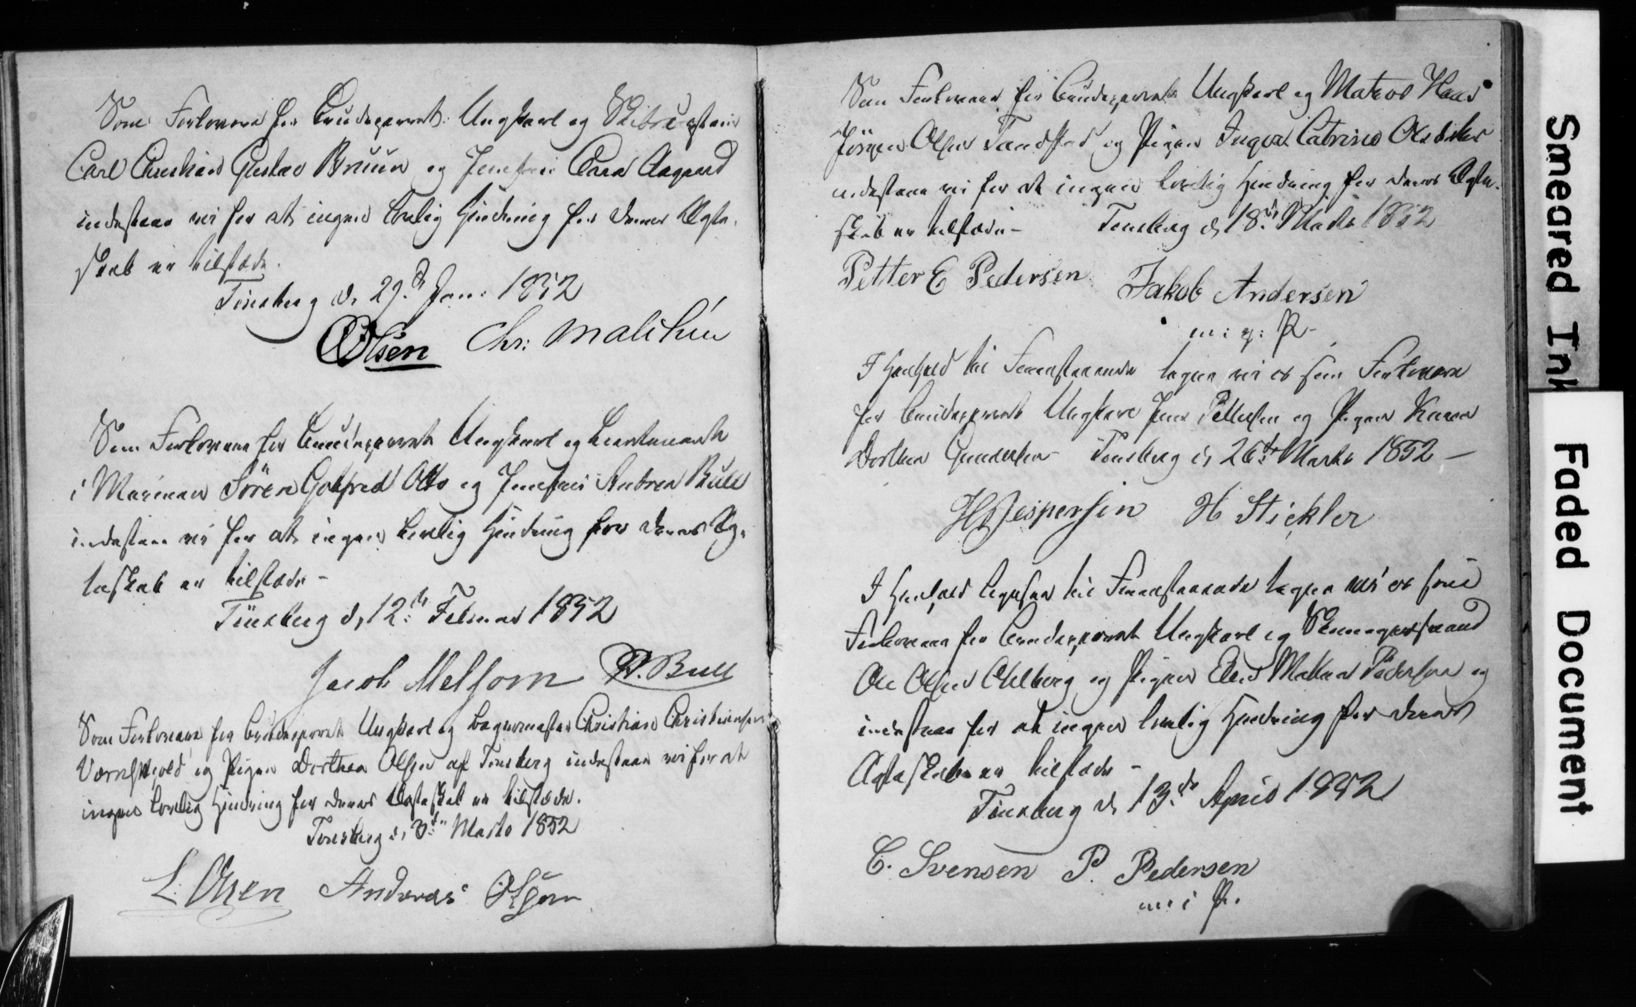 Som Forlovere for Brudeparret Ungkarl og
Carl Christian Gustav Bruun og Jomfru Aagaard
indestaae vi for at ingen lovlig Hindring for deres Ægte-
skab er tilstæde.
Tönsberg d. 29. Jan: 1852
Olsen Chr:
Som Forlovere for Brudeparret Ungkarl og Lieutenant
i Marinen Sören Gotfred Otto og Jomfru Andrea Bull
indestaae vi for at ingen lovlig Hindring for deres Æg-
teskab er tilstæde –
Tönsberg d. 12te Februar 1852
Jacob Melsom Bull
Som Forlovere for Brudeparret Ungkarl og Christian Christensen
og Pigen Dorthea Olsen af Tönsberg indestaae vi for at
ingen lovlig Hindring for deres Ægteskab er tilstæde.
Tönsberg d. 3die Marts 1852
L. Olsen Andreas
Som Forlovere for Brudeparret Ungkarl og Matros Haas
Jörgen Olsen og Pigen Catrine
indestaae vi for at ingen lovlig Hindring for deres Ægte-
skab er tilstæde – Tönsberg d. 18de Marts 1852
Petter E Pedersen Jakob Andersen
m: p: P
I Henhold til Foranstaaende tegne vi os som Forlovere
for Brudeparret Ungkarl og Pigen Karen
Dorthea Gundersen Tönsberg d. 26de Marts 1852 –
Jespersen H Stickler
I Henhold til Foranstaaende tegne vi os som
Forlovere for Brudeparret Ungkarl og
Ole Olsen og Pigen Pedersen og
indestaae for at ingen lovlig Hindring for deres
Ægteskab er tilstæde –
Tönsberg d. 13de April 1852
C. Svensen P. Pedersen
Smeared Ink
Faded Document